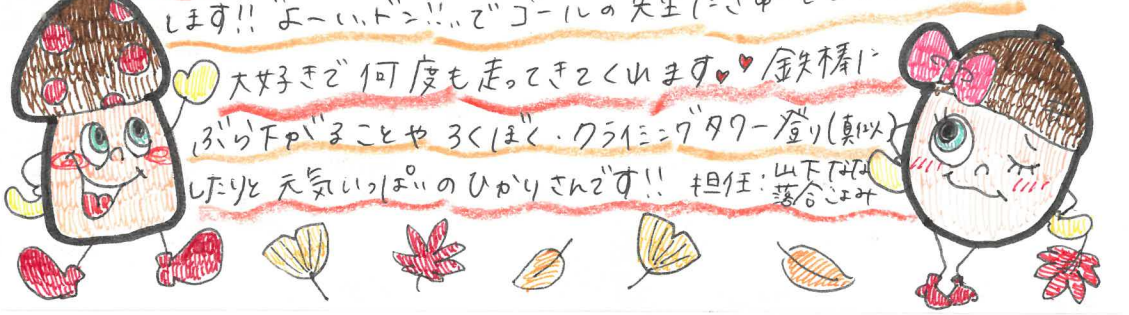 します!!"よーい、ドン!!"でゴールの先生に
大好きで何度も走ってきてくれます♥♥鉄棒に
ぶら下がることや ろくぼく・クライミングタワー登り(真似)
したりと元気いっぱいのひかりさんです!! 担任:山下なな
落合ごよみ